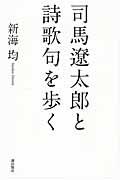 司馬遼太郎と
詩歌句を歩く
新海 均
潮出版社